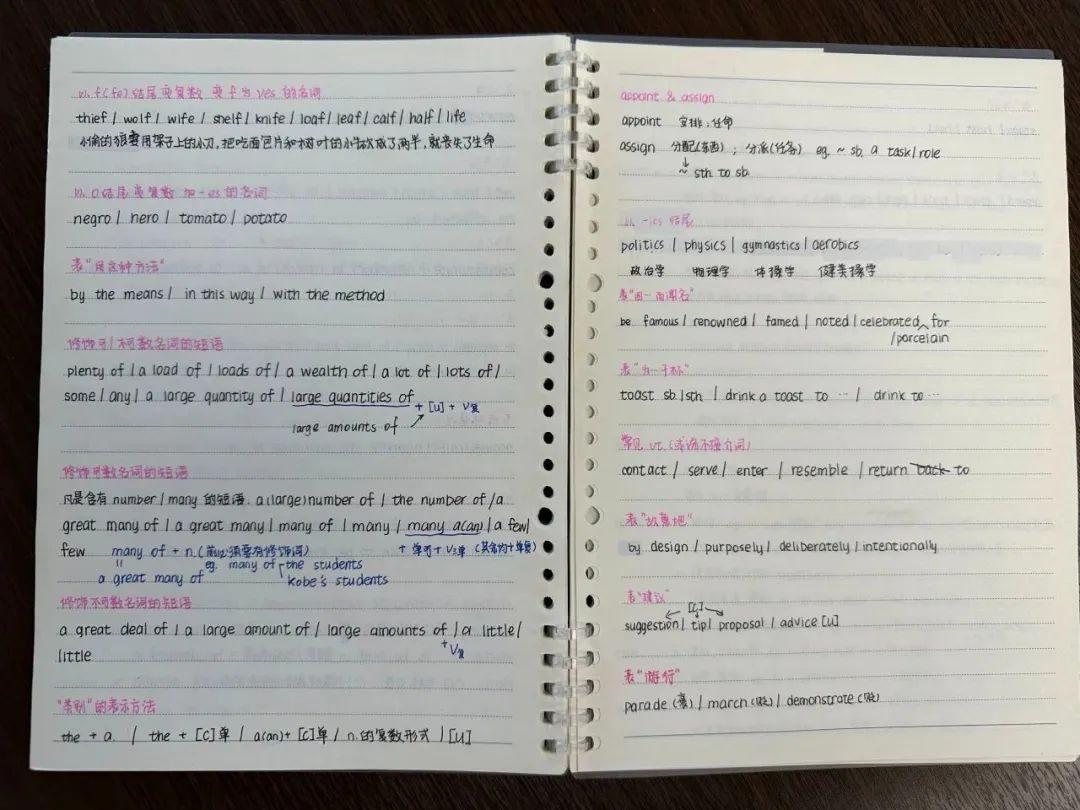 以 f(fe)结尾变复数 变f为ves的名词
thief / wolf / wife / shelf / knife / loaf / leaf / calf / half / life
小偷的狼妻用架子上的小刀,把吃面包片和树叶的小牛砍成了两半,就丧失了生命
以 o结尾变复数 加-es的名词
negro / hero / tomato / potato
表"用这种方法"
by the means / in this way / with the method
修饰可/不可数名词的短语
plenty of / a load of / loads of / a wealth of / a lot of / lots of /
some / any / a large quantity of / large quantities of
+ [U] + V复
large amounts of ↗
修饰可数名词的短语
凡是含有 number / many 的短语: a (large) number of / the number of / a
great many of / a great many / many of / many / many a(an) / a few /
few many of + n. (前必须要有修饰词) + 单可 + V单 (其余均+单复)
= eg. many of the students
a great many of kobe's students
修饰不可数名词的短语
a great deal of / a large amount of / large amounts of / a little /
+ V复
little
"类别"的表示方法
the + a. / the + [C]单 / a(an)+ [C]单 / n.的复数形式 / [U]
appoint & assign
appoint 安排;任命
assign 分配(东西) ; 分派(任务) eg. ~ sb. a task / role
↓
~ sth to sb.
以 -ics 结尾
politics / physics / gymnastics / aerobics
政治学 物理学 体操学 健美操学
表"因…而闻名"
be famous / renowned / famed / noted / celebrated for
/porcelain
表"为…干杯"
toast sb./sth / drink a toast to … / drink to …
常见 vt. (或该不接介词)
contact / serve / enter / resemble / return back to
表"故意地"
by design / purposely / deliberately / intentionally
表"建议"
[C]
suggestion / tip / proposal / advice [U]
表"游行"
parade (喜) / march (贬) / demonstrate (贬)